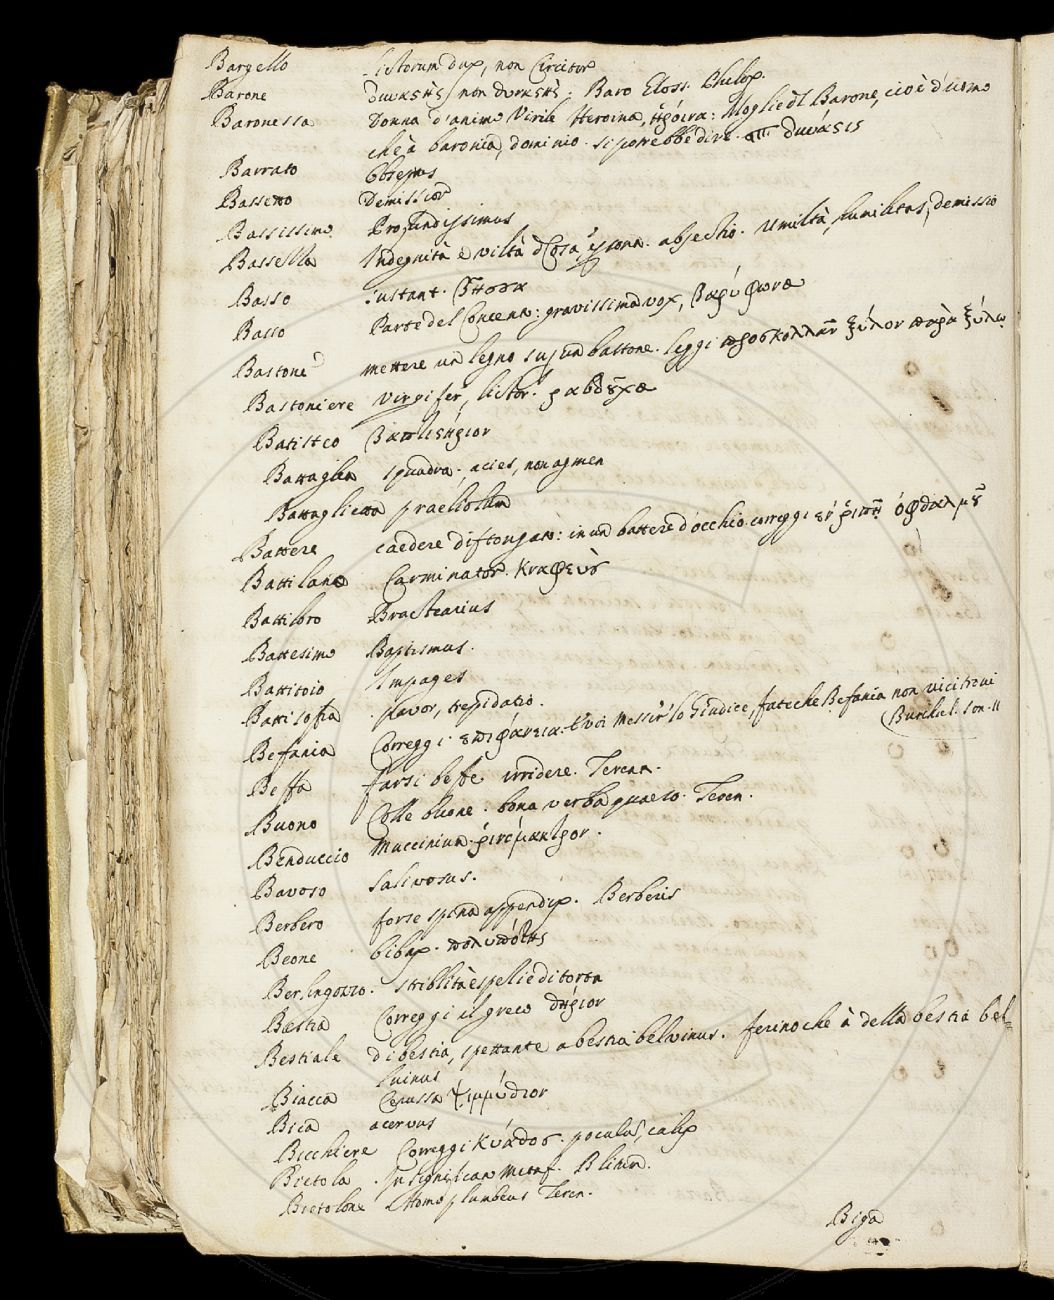 Bargello lictorum dux, non Circitor
Barone δυνάϛης, non δυνάϛης: Baro Gloss. Philox.
Baronessa Donna d'animo Virile Heroina, ἡρόινα: Moglie dl Barone, cioè d'uomo
ch'à baronia, dominio. si potrebbe dire δυνάϛις
Barrato
Bassetto Demissior
Bassissimo Profundissimus
Bassezza Indegnità e viltà abjectio. Umiltà, humilitas, demissio
Basso sustant.
Basso Parte del Concento: gravissima vox, βαρύφωνα
Bastone mettere un legno su un bastone. leggi προσκολλᾶν ξύλον παρὰ ξύλω
Bastoniere virgifer, lictor. ῥαβδȣχα
Batisteo βαπτιϛήριον
Battaglia squadra. acies, non agmen
Battaglietta praeliolum
Battere caedere diftongato: in un battere d'occhio correggi ἐν ῥιπῇ ὀφθαλμȣ͂
Battilano Carminator. Κναφεὺς
Battiloro Bractearius
Battesimo Baptismus.
Battitoio Impages
Battisofia pavor, trepidatio.
Befania Correggi. επιφάνεια. Messer lo Giudice, fate che Befania non vi ci trovi
Burchiel. Son. II
Beffa farsi beffe irridere. Teren.
Buono Colle buone. bona verba quaeso. Teren.
Benduccio Muccinium.
Bavoso Salivosus.
Berbero forse spina appendix. Berberis
Beone bibax. πολυπότης
Berlingozzo. striblità espelie di torta
Bestia Correggi il greco θηρίον
Bestiale di bestia, spettante a bestia belvinus. ferino che à della bestia bel=
luinus
Biacca Cerussa ψιμμύθιον
Bica acervus
Bicchiere Correggi Κύαθος. poculum, calix
Bietola. In significan metaf. Blitum.
Bietolone Homo plumbeus Teren.
Biga